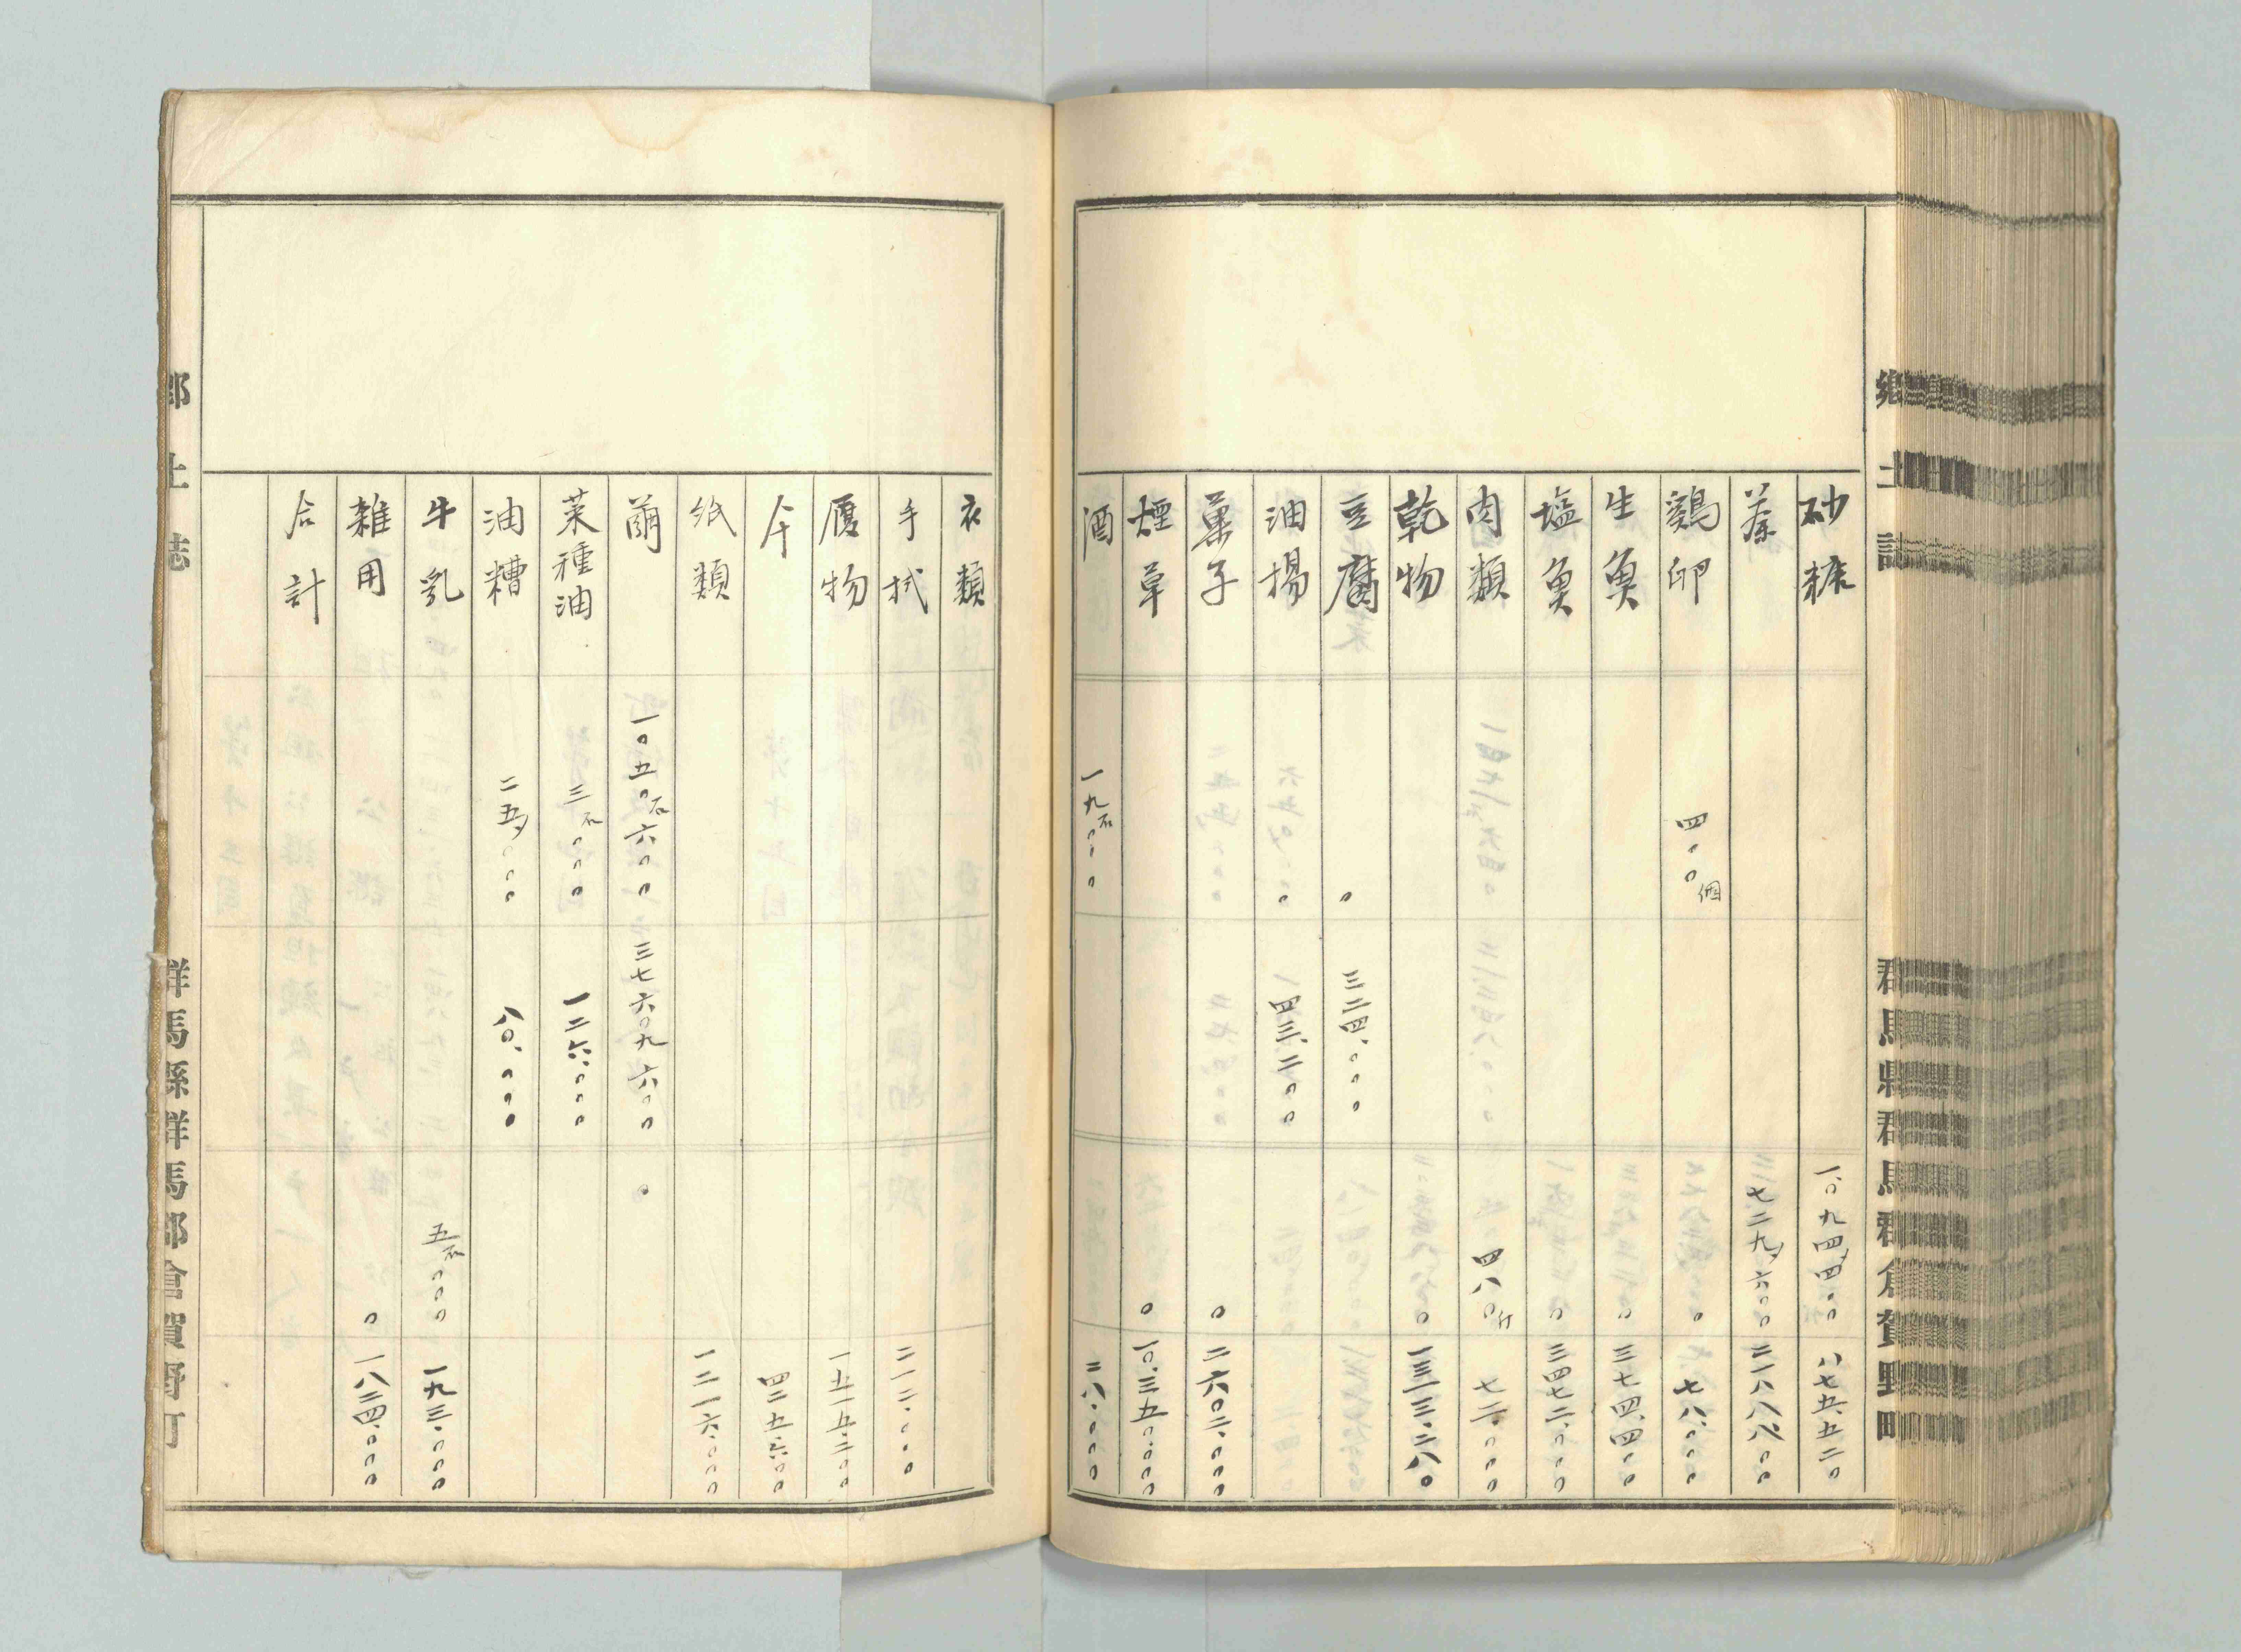 鄕土誌
群馬縣群馬郡倉賀野町
砂糖 一〇九四四〇〇 八七五五二〇
茶 七二九六〇〇 二一八八八〇〇
鷄卵 四〇〇個 〇 七八〇〇〇
生魚 〇 三七四四〇〇
塩魚 〇 三四七二〇〇〇
肉類 四八〇斤 七二〇〇〇
乾物 〇 一三三三二八〇
豆腐 〇 三二四〇〇〇
油揚 〇 一四三二〇〇
菓子 〇 二六〇二〇〇〇
煙草 〇 一〇三五〇〇〇〇
酒 一九石〇〇〇 二八〇〇〇
衣類
手拭 二一二〇〇〇
履物 一五一五二〇〇
傘 四二五六〇〇
紙類 一二一六〇〇〇
繭 一〇五〇石六〇〇 三七六〇九六〇〇 〇
菜種油 三石〇〇〇 一二六〇〇〇
油糟 二五〇〇〇 八〇〇〇〇
牛乳 五石〇〇〇 一九三〇〇〇
雜用 〇 一八二四〇〇〇
合計
郷土誌
群馬縣群馬郡倉賀野町